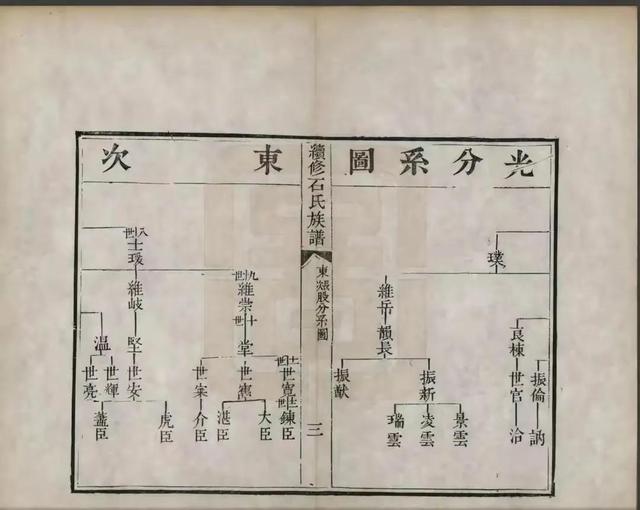 光分系圖
璞
良棟
世官
洽
振倫
訥
維岳
韻長
振新
景雲
凌雲
瑞雲
振猷
續修石氏族譜
股分系圖
三
東次
九世
維崇
十世
堂
世寬
鍊臣
世寯
大臣
湛臣
世寀
介臣
八世
士瑗
維岐
堅
世安
虎臣
溫
世輝
世亮
藎臣